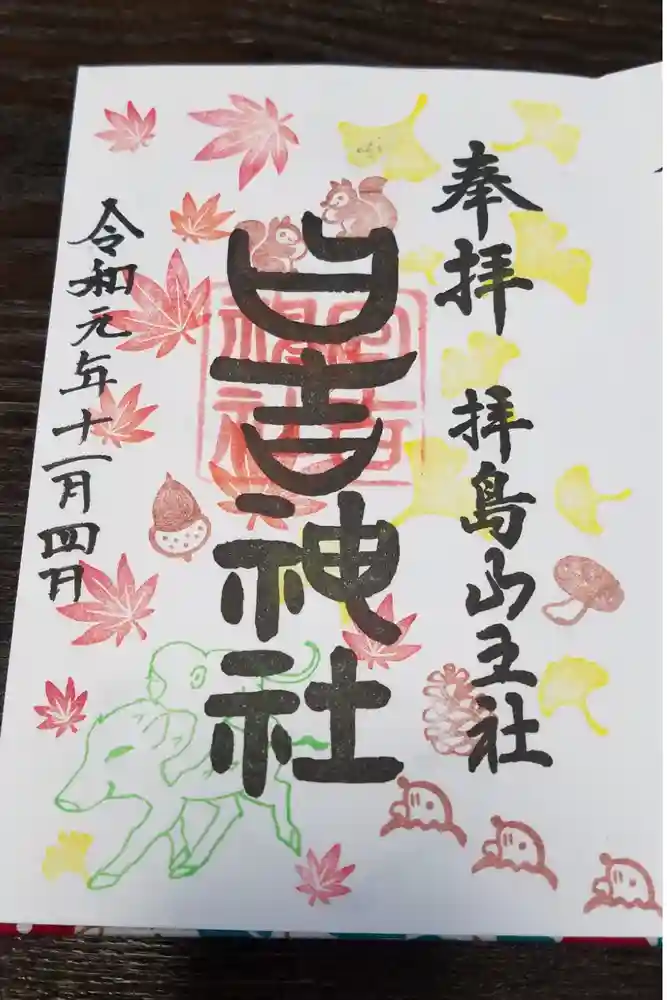 奉拝
拝島山王社
日吉神社
日吉
神社
令和元年十一月四日